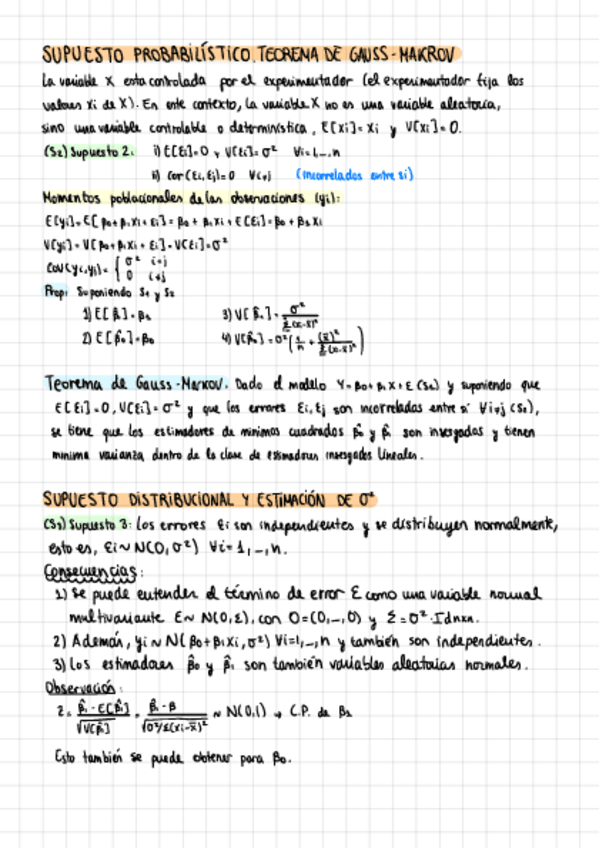 SUPUESTO PROBABILÍSTICO. TEOREMA DE GAUSS-MAKROV
La variable X esta controlada por el experimentador (el experimentador fija los
valores xi de X). En este contexto, la variable X no es una variable aleatoria,
sino una variable controlable o determinística, E[xi]=xi y V[xi]=0.
(S2) Supuesto 2: i) E[εi]=0 y V[εi]=σ² ∀i=1,_,n
ii) cor(εi,εj)=0 ∀i≠j (incorrelados entre sí)
Momentos poblacionales de las observaciones (yi):
E[yi]=E[β0+β1xi+εi]=β0+β1xi+E[εi]=β0+β1xi
V[yi]=V[β0+β1xi+εi]=V[εi]=σ²
Cov(yi,yj)= { σ² i=j
0 i≠j
Prop: Suponiendo S1 y S2
1) E[β̂1]=β1 3) V[β̂1]= σ² / Σ(xi-x̄)²
2) E[β̂0]=β0 4) V[β̂0]=σ²(1/n + (x̄)² / Σ(xi-x̄)²)
Teorema de Gauss-Markov. Dado el modelo Y=β0+β1X+ε (S1) y suponiendo que
E[εi]=0, V[εi]=σ² y que los errores εi,εj son incorrelados entre sí ∀i≠j (S2),
se tiene que los estimadores de minimos cuadrados β̂0 y β̂1 son insesgados y tienen
minima varianza dentro de la clase de estimadores insesgados lineales.
SUPUESTO DISTRIBUCIONAL Y ESTIMACIÓN DE σ²
(S3) Supuesto 3: Los errores εi son independientes y se distribuyen normalmente,
esto es, εi~N(0,σ²) ∀i=1,_,n.
Consecuencias:
1) Se puede entender el término de error ε como una variable normal
multivariante ε~N(0,Σ), con 0=(0,_,0) y Σ=σ²·Idnxn.
2) Además, yi~N(β0+β1xi,σ²) ∀i=1,_,n y también son independientes.
3) Los estimadores β̂0 y β̂1 son también variables aleatorias normales.
Observación:
Z= β̂1-E[β̂1] / √V[β̂1] = β̂1-β / √σ²/Σ(xi-x̄)² ~N(0,1) → C.P. de β1
Esto también se puede obtener para β0.